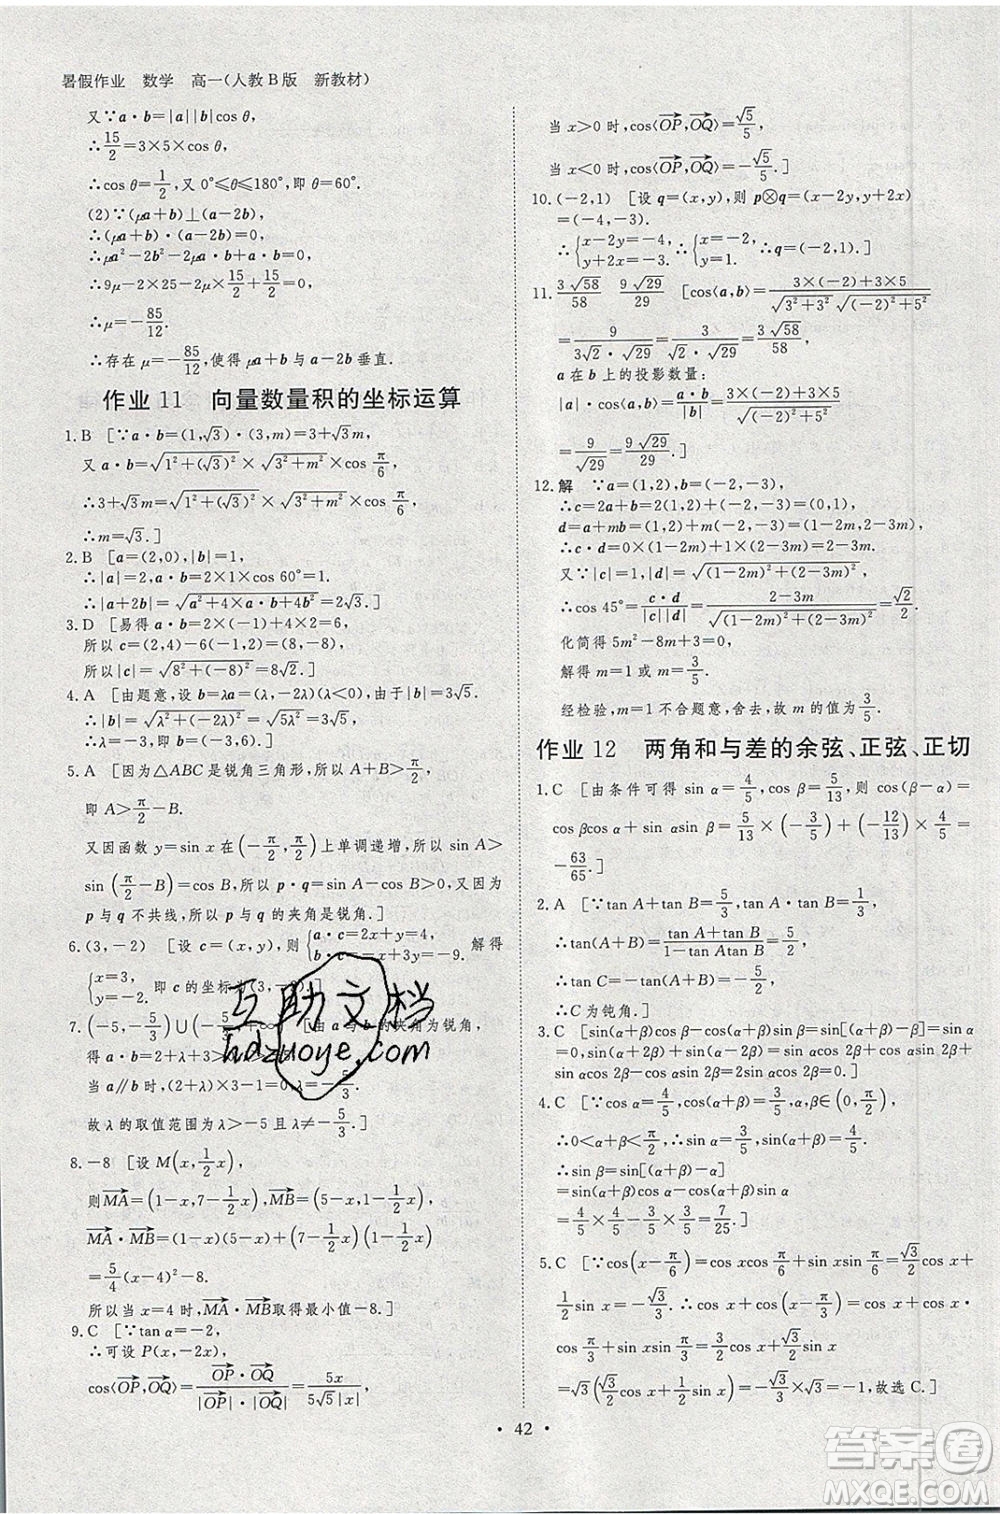 暑假作业 数学 高一(人教B版 新教材)
又∵a·b=|a||b|cos θ,
∴15/2=3×5×cos θ,
∴cos θ=1/2,又 0°≤θ≤180°,即 θ=60°.
(2)∵(μa+b)⊥(a-2b),
∴(μa+b)·(a-2b)=0,
∴μa²-2b²-2μa·b+a·b=0,
∴9μ-2×25-2μ×15/2+15/2=0,
∴μ=-85/12.
∴存在 μ=-85/12,使得 μa+b 与 a-2b 垂直.
作业 11 向量数量积的坐标运算
1.B [∵a·b=(1,√3)·(3,m)=3+√3m,
又 a·b=√(1²+(√3)²)×√(3²+m²)×cos π/6,
∴3+√3m=√(1²+(√3)²)×√(3²+m²)×cos π/6,
∴m=√3.]
2.B [a=(2,0),|b|=1,
∴|a|=2,a·b=2×1×cos 60°=1.
∴|a+2b|=√(a²+4×a·b+4b²)=2√3.]
3.D [易得 a·b=2×(-1)+4×2=6,
所以 c=(2,4)-6(-1,2)=(8,-8),
所以|c|=√(8²+(-8)²)=8√2.]
4.A [由题意,设 b=λa=(λ,-2λ)(λ<0),由于|b|=3√5.
∴|b|=√(λ²+(-2λ)²)=√(5λ²)=3√5,
∴λ=-3,即 b=(-3,6).]
5.A [因为△ABC 是锐角三角形,所以 A+B>π/2,
即 A>π/2-B.
又因函数 y=sin x 在(-π/2,π/2)上单调递增,所以 sin A>
sin(π/2-B)=cos B,所以 p·q=sin A-cos B>0,又因为
p 与 q 不共线,所以 p 与 q 的夹角是锐角.]
6.(3,-2) [设 c=(x,y),则{a·c=3x-y=11, b·c=-x+3y=-9. 解得
{x=3, y=-2. 即 c 的坐标为(3,-2).]
7.(-5,-5/3)∪(-5/3,+∞) [由 a 与 b 的夹角为锐角,
当 a∥b 时,(2+λ)×3-1×1=0,λ=-5/3.
故 λ 的取值范围为 λ>-5 且 λ≠-5/3.]
8.-8 [设 M(x,1/2x),
则MA=(1-x,7-1/2x),MB=(5-x,1-1/2x),
MA·MB=(1-x)(5-x)+(7-1/2x)(1-1/2x)
=5/4(x-4)²-8.
所以当 x=4 时,MA·MB取得最小值-8.]
9.C [∵tan α=-2,
∴可设 P(x,-2x),
cos⟨OP,OQ⟩=OP·OQ/(|OP|·|OQ|)=5x/(5√5|x|),
当 x>0 时,cos⟨OP,OQ⟩=√5/5,
当 x<0 时,cos⟨OP,OQ⟩=-√5/5.]
10.(-2,1) [设 q=(x,y),则 p⊗q=(x-2y,y+2x)
=(-4,-3).
∴{x-2y=-4, y+2x=-3. ∴{x=-2, y=1. ∴q=(-2,1).]
11.3√58/58 9√29/29 [cos⟨a,b⟩=(3×(-2)+3×5)/(√(3²+3²)√((-2)²+5²))
=9/(3√2·√29)=3/(√2·√29)=3√58/58.
a 在 b 上的投影数量为
|a|·cos⟨a,b⟩=a·b/|b|=(3×(-2)+3×5)/√((-2)²+5²)
=9/√29=9√29/29.]
12.解 ∵a=(1,2),b=(-2,-3),
∴c=2a+b=2(1,2)+(-2,-3)=(0,1),
d=a+mb=(1,2)+m(-2,-3)=(1-2m,2-3m),
∴c·d=0×(1-2m)+1×(2-3m)=2-3m.
又∵|c|=1,|d|=√((1-2m)²+(2-3m)²),
∴cos 45°=c·d/(|c||d|)=(2-3m)/√((1-2m)²+(2-3m)²)=√2/2.
化简得 5m²-8m+3=0,
解得 m=1 或 m=3/5.
经检验,m=1 不合题意,舍去,故 m 的值为3/5.
作业 12 两角和与差的余弦、正弦、正切
1.C [由条件可得 sin α=4/5,cos β=5/13,则 cos(β-α)=
cos βcos α+sin αsin β=5/13×(-3/5)+(-12/13)×4/5=
-63/65.]
2.A [∵tan A+tan B=5/3,tan A·tan B=1/3,
∴tan(A+B)=(tan A+tan B)/(1-tan Atan B)=5/2,
∴tan C=-tan(A+B)=-5/2,
∴C 为钝角.]
3.C [sin(α+β-α)cos α-cos(α+β-α)sin α=
sin(α+β)cos 2α-cos(α+β)sin 2α]
4.C [∵cos α=3/5,cos(α+β)=3/5,α,β∈(0,π/2),
∴0<α+β<π/2,∴sin α=4/5,sin(α+β)=4/5.
∴sin β=sin[(α+β)-α]
=sin(α+β)cos α-cos(α+β)sin α
=4/5×4/5-3/5×3/5=7/25.]
5.C [∵cos(x-π/6)=cos xcos π/6+sin xsin π/6=√3/2cos x+
1/2sin x=-√3/3,∴cos x+cos(x-π/3)=cos x+cos x·
cos π/3+sin xsin π/3=3/2cos x+√3/2sin x
=√3(√3/2cos x+1/2sin x)=√3×(-√3/3)=-1,故选 C.]
· 42 ·
互助文档
hdzuoye.com
答案卷
MXQE.COM